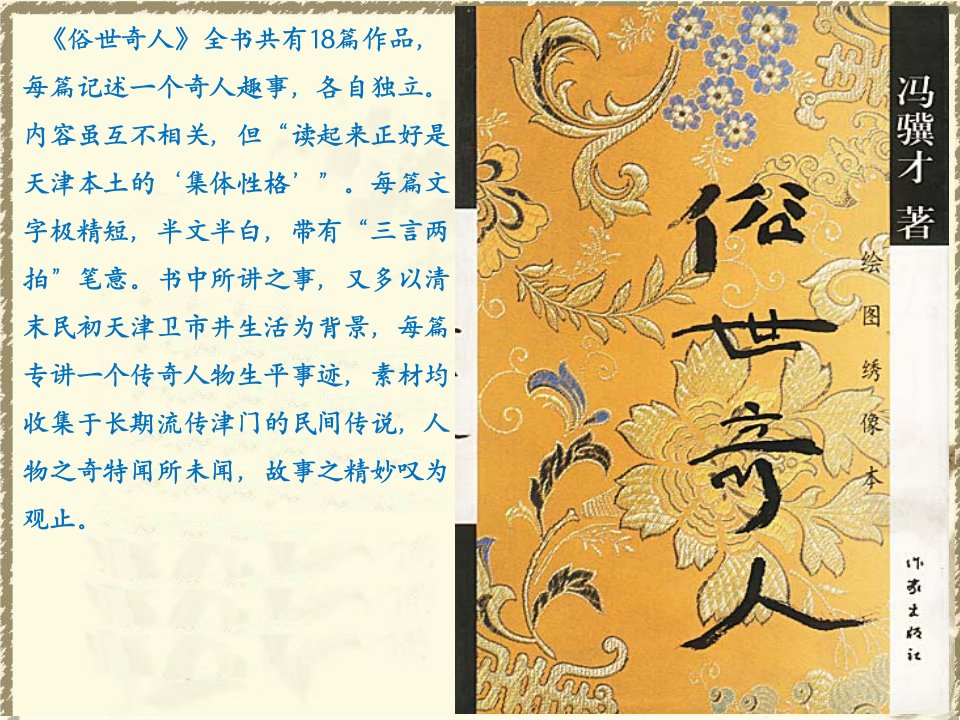 《俗世奇人》全书共有18篇作品，
每篇记述一个奇人趣事，各自独立。
内容虽互不相关，但“读起来正好是
天津本土的‘集体性格’”。每篇文
字极精短，半文半白，带有“三言两
拍”笔意。书中所讲之事，又多以清
末民初天津卫市井生活为背景，每篇
专讲一个传奇人物生平事迹，素材均
收集于长期流传津门的民间传说，人
物之奇特闻所未闻，故事之精妙叹为
观止。
俗世奇人
绘图绣像本
冯骥才 著
作家出版社